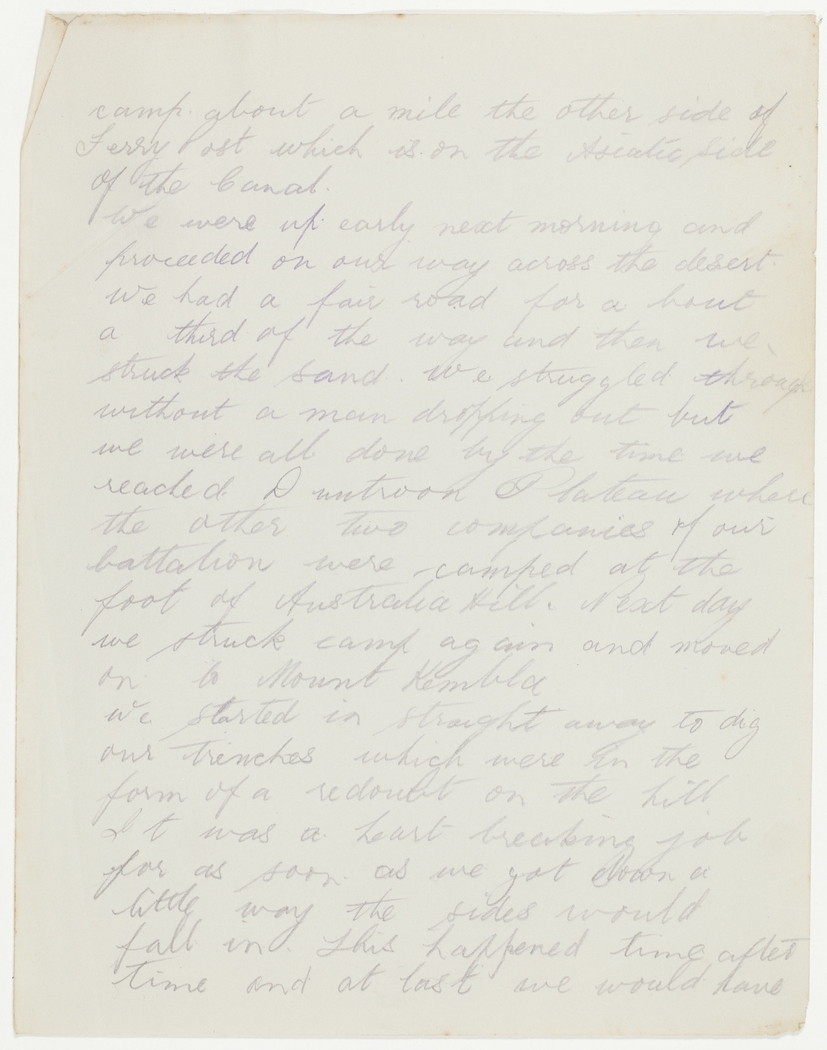 camp. about a mile the other side of
Ferry ost which is on the Asiatic side
of the Canal.
We were up early next morning and
proceeded on our way across the desert.
We had a fair road for a bout
a third of the way and then we
struck the sand. We struggled through
without a man dropping out but
we were all done by the time we
reached Duntroon Plateau where
the other two companies of our
battalion were camped at the
foot of Australia Hill. Next day
we struck camp again and moved
on to Mount Kembla
We started in straight away to dig
our trenches which were in the
form of a redoubt on the hill
It was a heart breaking job
for as soon as we got down a
little way the sides would
fall in. This happened time after
time and at last we would have